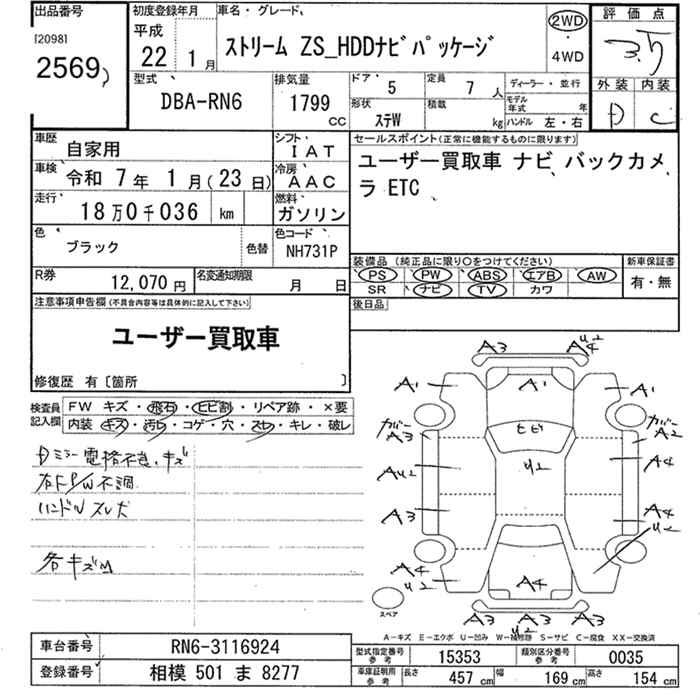 出品番号
[2098]
2569
初度登録年月
平成
22 1月
車名・グレード
ストリーム ZS_HDDﾅﾋﾞﾊﾟｯｹｰｼﾞ
2WD
4WD
評価点
3.5
外装 内装
D C
型式
DBA-RN6
排気量
1799
CC
ドア 5
定員 7 人
形状 ｽﾃW
積載 kg
ディーラー・並行
モデル年式 年
ハンドル 左・右
車歴 自家用
シフト IAT
車検 令和 7年 1月(23日)
冷房 AAC
走行 18万0千036 km
燃料 ガソリン
色 ブラック 色替
色コード NH731P
R券 12,070円
名変通知期限 月 日
セールスポイント(正常に機能するものに限ります)
ユーザー買取車 ナビ バックカメ
ラ ETC
装備品 (純正品に限り○をつけてください)
PS PW ABS エアB AW
SR ナビ TV カワ
新車保証書
有・無
後日品
注意事項申告欄(不具合内容等は具体的に記入して下さい)
ユーザー買取車
修復歴 有〔箇所 〕
検査員
記入欄
FW キズ・飛石・ヒビ割・リペア跡・×要
内装 キズ・汚れ・コゲ・穴・スレ・キレ・破レ
ミラー電格不良、キズ
右F P/W不調
ハンドルスレ大
各キズM
A3
A4 U2
A1
A1
A1
カバー
A3
カバー
A2
ヒビ
U2
AU2
A4
A3
A4
U2
A4
U2
A4
A3
A3
U2
A3
スペア
A-キズ E-エクボ U-凹み W-補修跡 S-サビ C-腐食 XX-交換済
車台番号 RN6-3116924
登録番号 相模 501 ま 8277
型式指定番号
参考
15353
類別区分番号
参考
0035
車庫証明用
参考
長さ 457 cm
幅 169 cm
高さ 154 cm